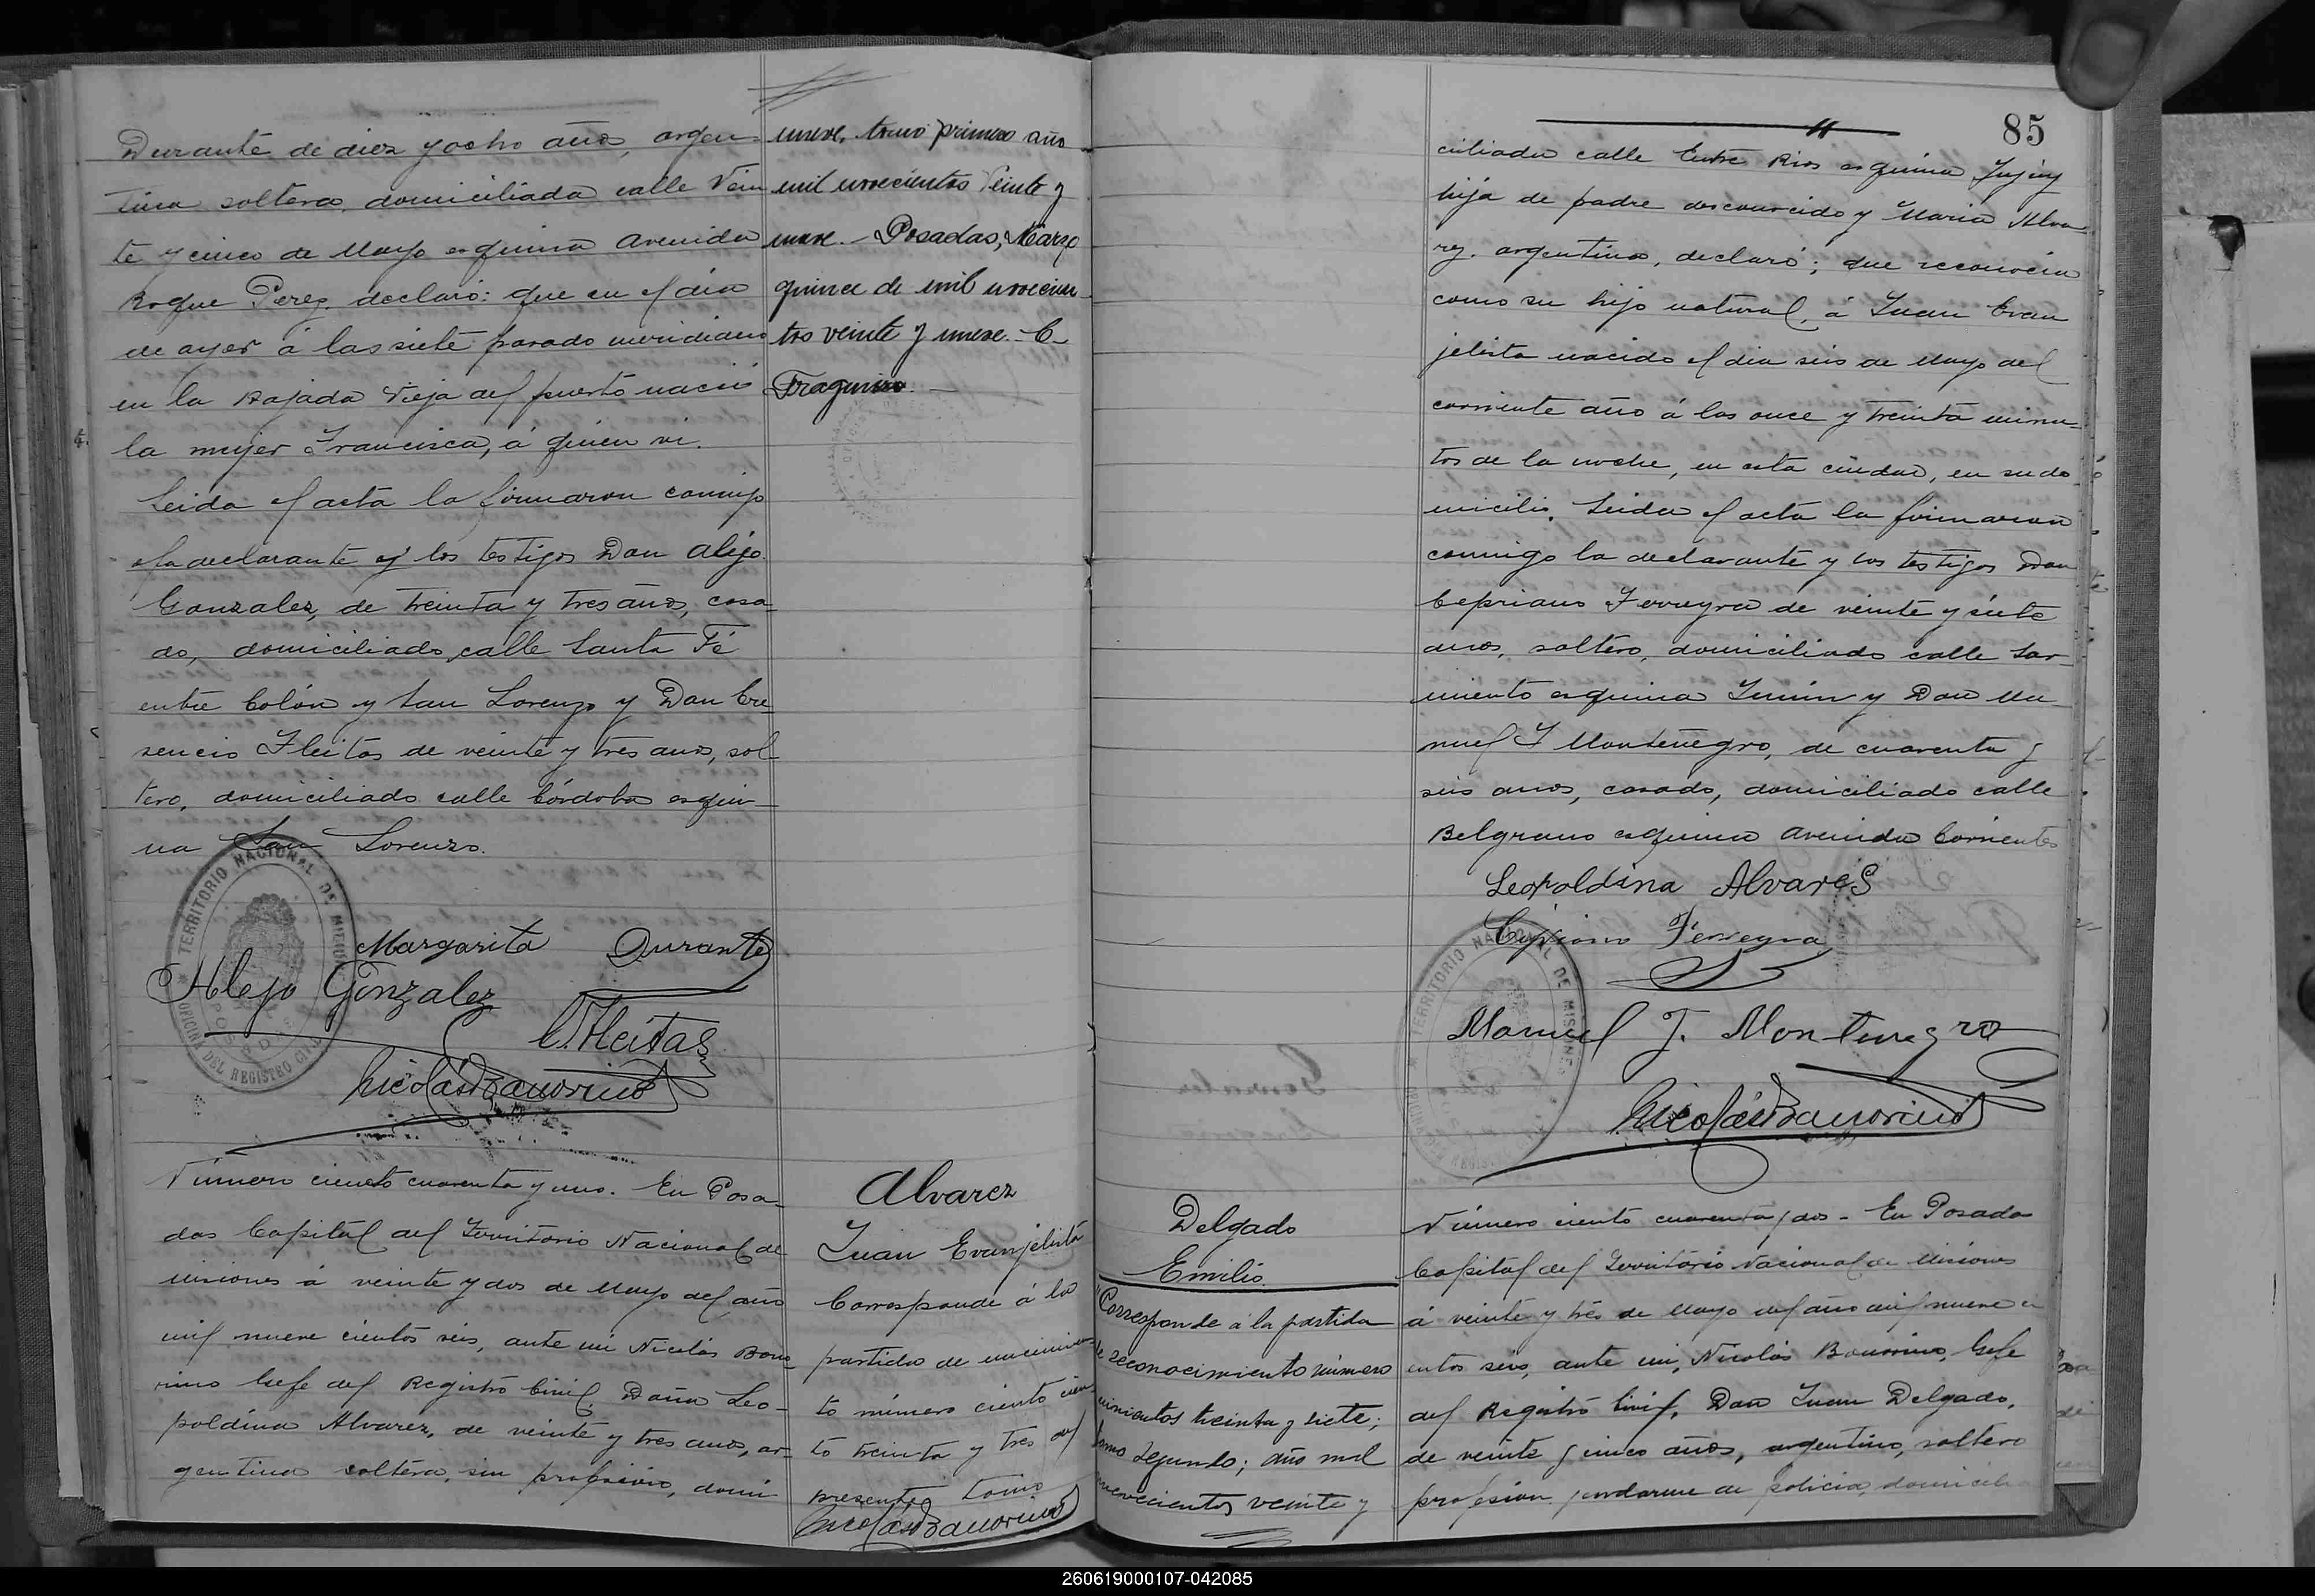 Durante de diez y ocho años, argen-
tina soltera, domiciliada calle Vein
te y cinco de Mayo esquina Avenida
Roque Perez, declaró: que en el día
de ayer á las siete pasado meridiano
en la Bajada Vieja del puerto nació
la mujer Francisca, á quien vi.
Leida el acta la firmaron conmigo
la declarante y los testigos Don Alejo
Gonzalez, de treinta y tres años, casa
do, domiciliado calle Santa Fé
entre Colón y San Lorenzo y Don Cre
sencio Fleitas de veinte y tres anos, sol
tero, domiciliado calle Córdoba esqui-
na San Lorenzo.
TERRITORIO NACIONAL DE MISIONES
OFICINA DEL REGISTRO CIVIL
POSADAS
Margarita Durante
Alejo Gonzalez
C. Fleitas
Nicolás Bonorino
nueve, tomo primero año
mil novecientos veinte y
nueve. - Posadas, Marzo
quince de mil novecien
tos veinte y nueve. - C.
Número ciento cuarenta y uno. En Posa-
das Capital del Territorio Nacional de
Misiones á veinte y dos de Mayo del año
mil nueve cientos seis, ante mi Nicolás Bono
rino Gefe del Registro Civil, Doña Leo-
poldina Alvarez, de veinte y tres anos, ar-
gentina soltera, sin profesión, domi
Alvarez
Juan Evanjelista
Corresponde á la
partida de nacimien-
to número ciento
to treinta y tres del
presente tomo
Nicolás Bonorino
85
ciliada calle Entre Rios esquina Jujuy
hija de padre desconocido y Maria Alva-
rez, argentina, declaró; que reconocia
como su hijo natural, á Juan Evan
jelista nacido el dia seis de Mayo del
corriente año á las once y treinta minu-
tos de la noche, en esta ciudad, en su do
micilio. Leida el acta la firmaron
conmigo la declarante y los testigos Don
Cepriano Ferreyra de veinte y siete
anos, soltero, domiciliado calle Sar-
miento esquina Junin y Don Ma
nuel J Montenegro, de cuarenta y
seis anos, casado, domiciliado calle
Belgrano esquina Avenida Corrientes
Leopoldina Alvares
Cipriano Ferreyra
TERRITORIO NACIONAL DE MISIONES
Manuel J. Montenegro
Nicolás Bonorino
Delgado
Emilio.
Corresponde a la partida
de reconocimiento número
treinta y siete;
tomo segundo; año mil
novecientos veinte y
Número ciento cuarenta y dos - En Posadas
Capital del Territorio Nacional de Misiones
á veinte y tres de Mayo del año mil nueve ci
entos seis, ante mi, Nicolás Bonorino, Gefe
del Registro Civil, Don Juan Delgado,
de veinte y cinco años, argentino, soltero
profesion gendarme de policia, domicili
260619000107-042085